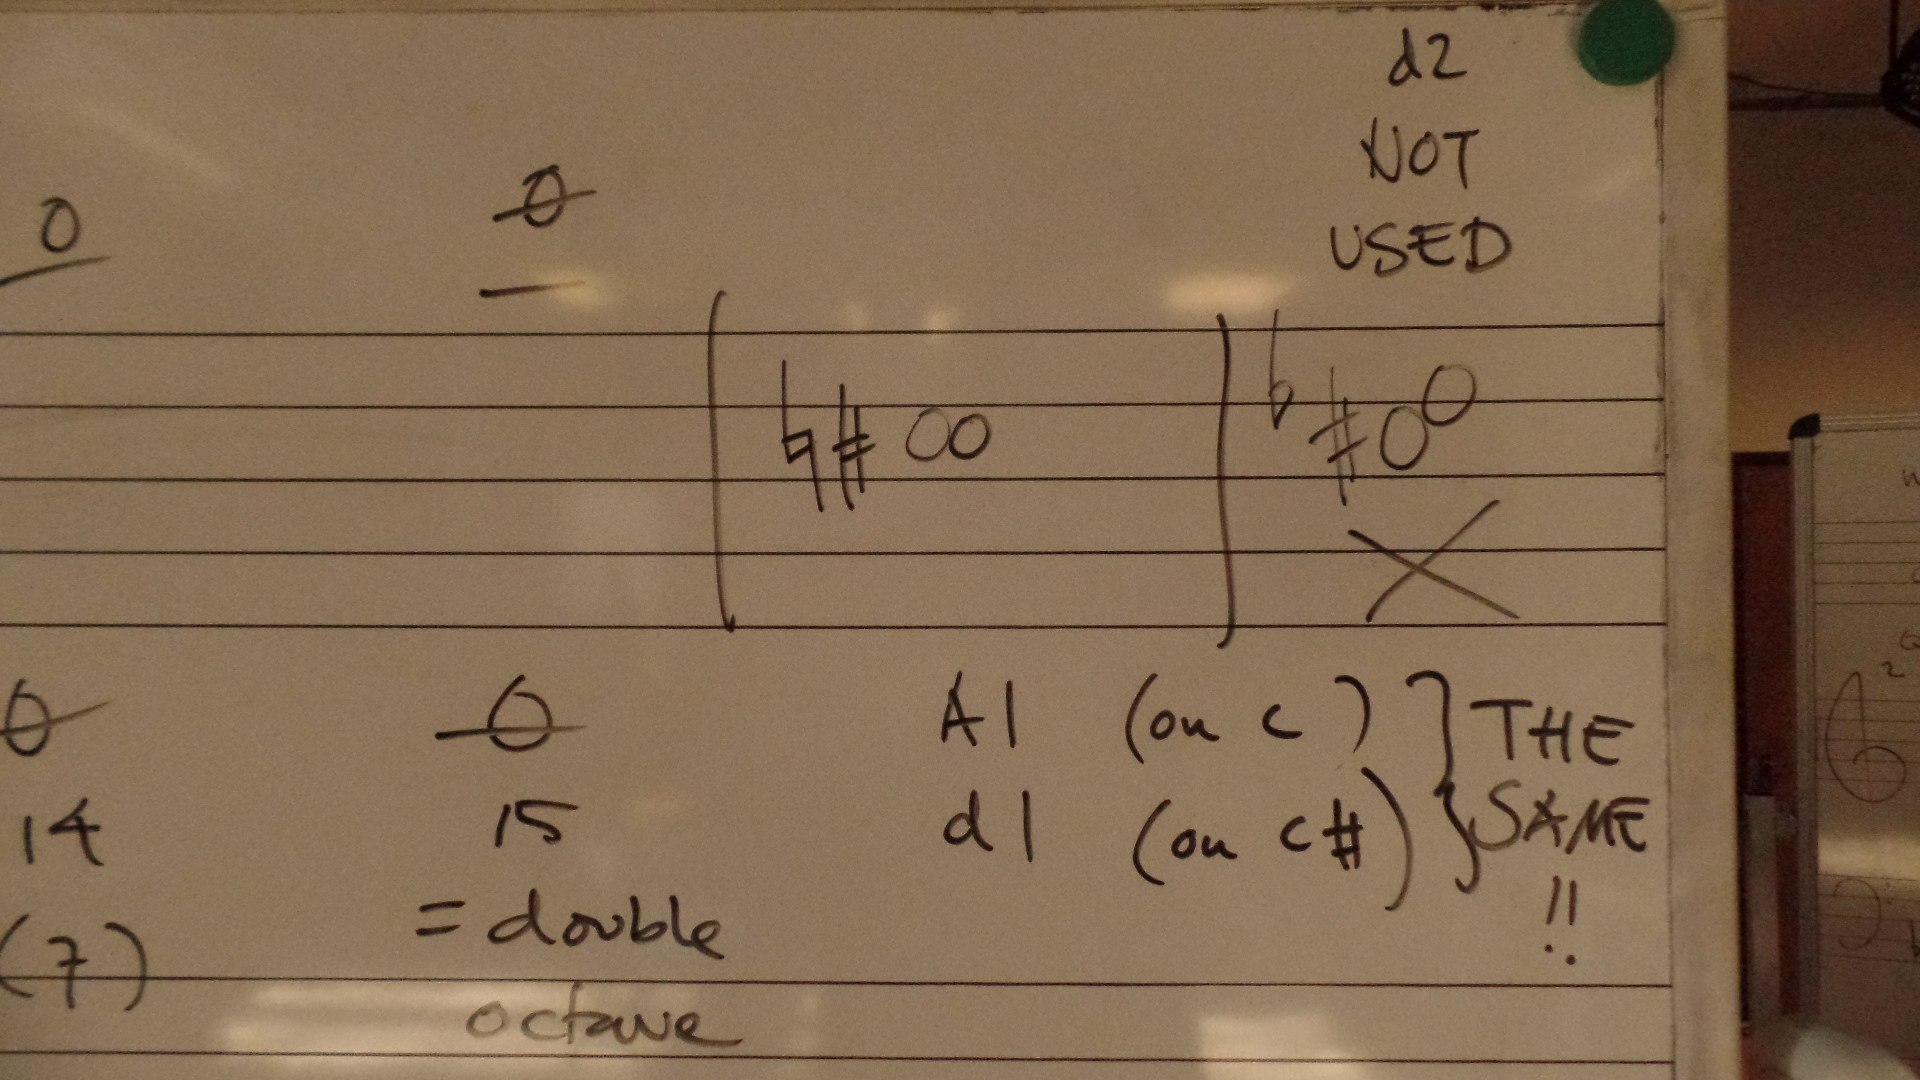 d2
NOT
USED
♮# 
♭#
A1 (on c) } THE
d1 (on c#) } SAME
!!
14
(7)
15
= double
octave
2